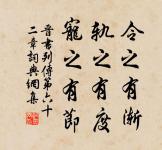 令之有漸
軌之有度
寵之有節
晉書列傳第六十
二章詞典網集